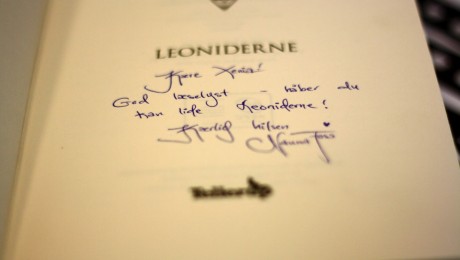 LEONIDERNE
Kære Xenia!
God læselyst – håber du
kan lide Leoniderne!
Kærlig hilsen
Nanna Foss
Tellerup